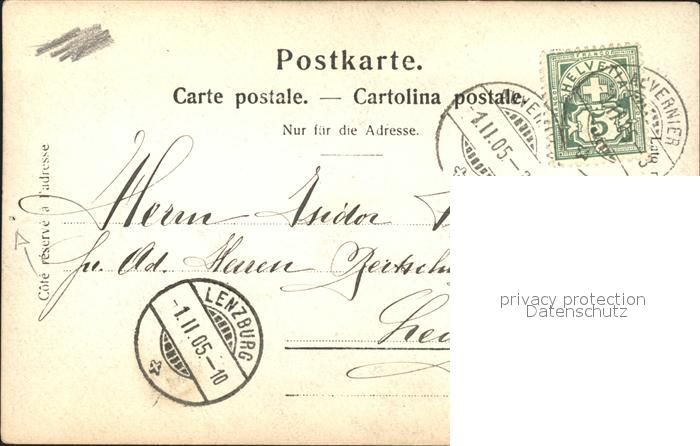 Postkarte.
Carte postale. — Cartolina postale.
Nur für die Adresse.
Côté réservé à l'adresse
FRANCO
HELVETIA
5
AUVERNIER
-1.II.05.-
AUVERNIER
Herrn Isidor
p. Ad. Herren
LENZBURG
-1.II.05.-10
privacy protection
Datenschutz